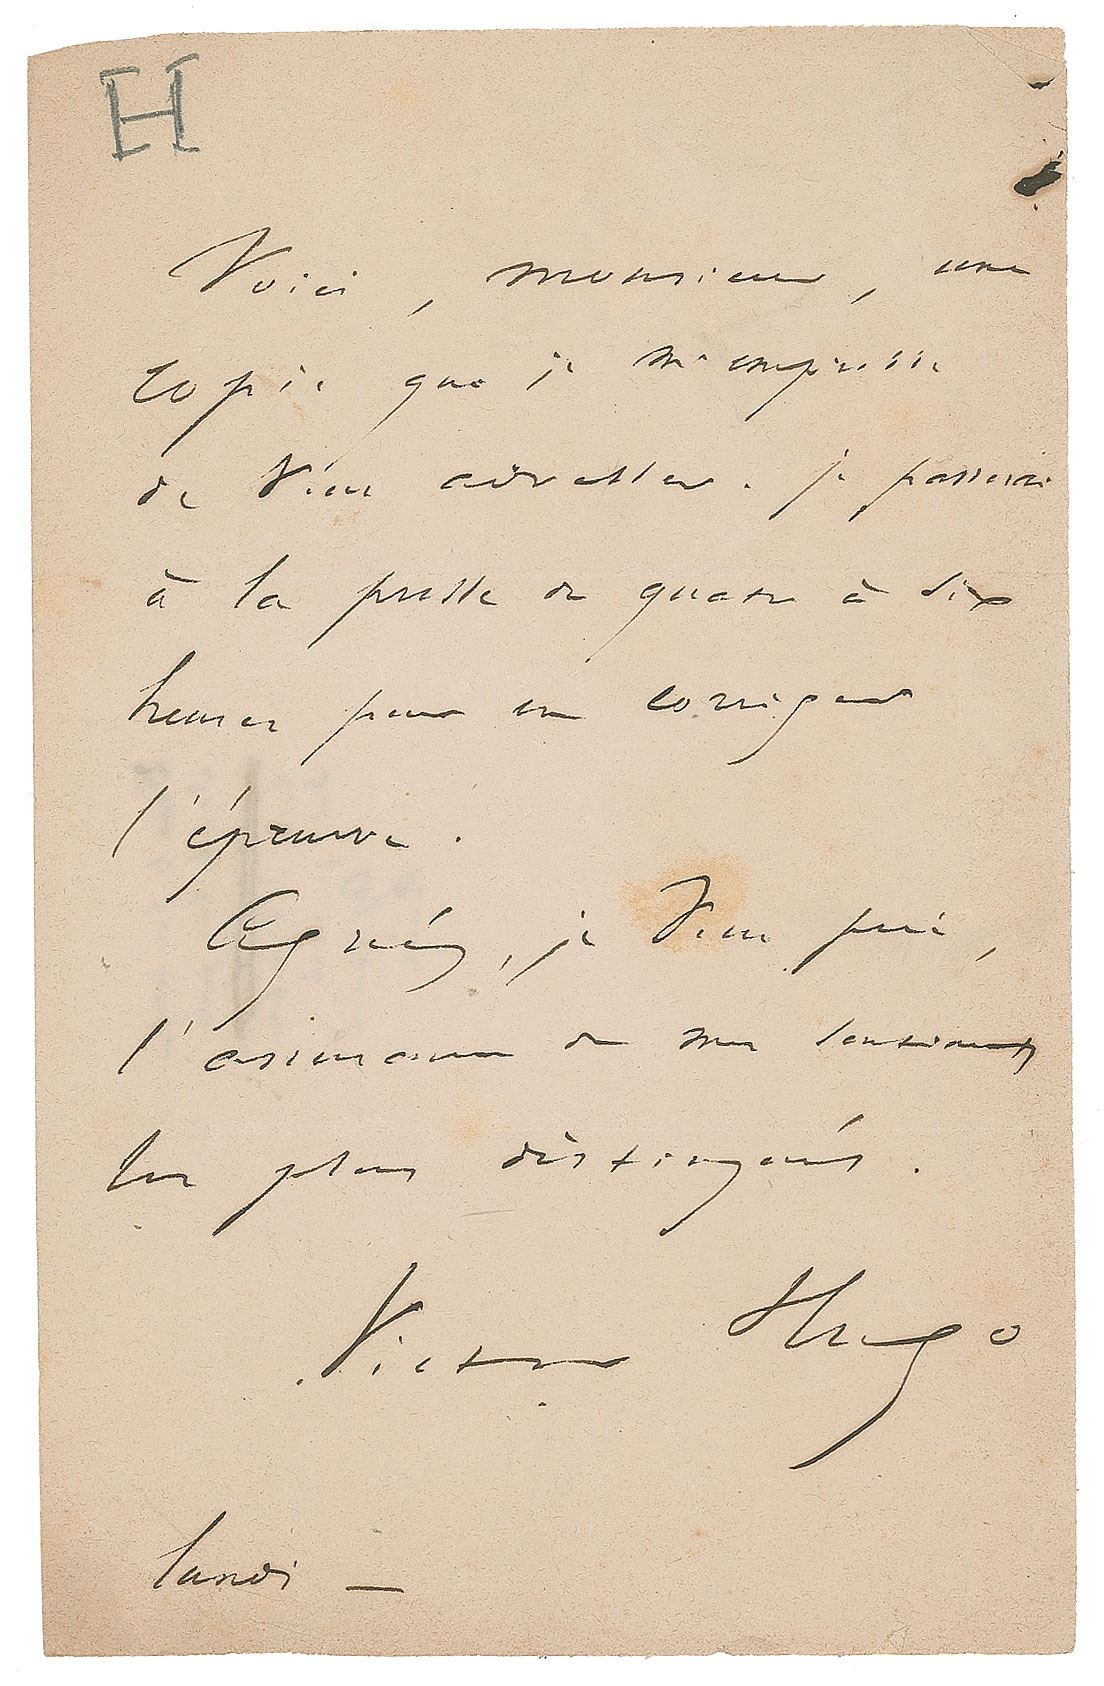 H
Voici, monsieur, une
copie que je m'empresse
de vous adresser. je passerai
à la presse de quatre à six
heures pour en corriger
l'épreuve.
Agréez, je vous prie,
l'assurance de mes sentiments
les plus distingués.
Victor Hugo
lundi —